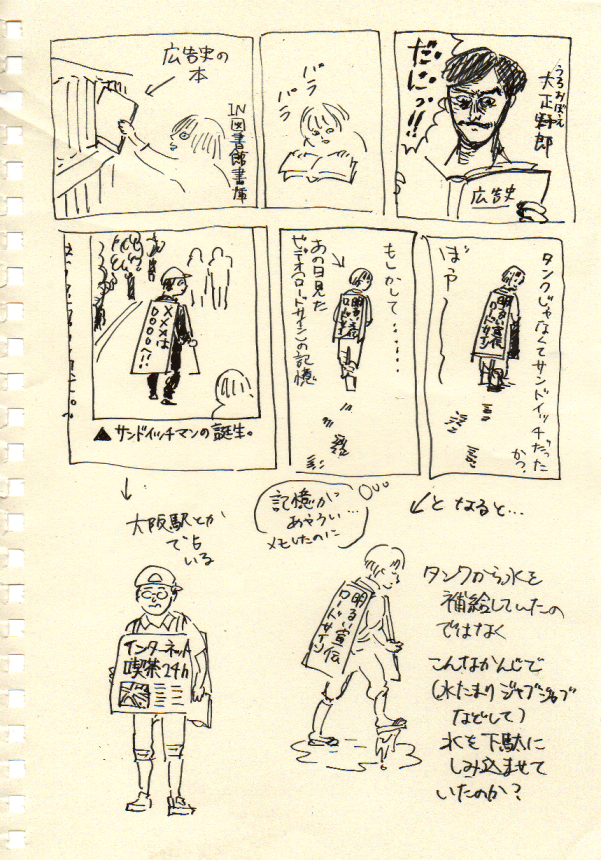 広告史の
本
IN図書館書庫
パラ
パラ
だにっ!!
うろおぼえ
大正野郎
広告史
×××は
〇〇〇〇へ!!
▲サンドイッチマンの誕生。
もしかして……
あの日見た
ビデオ(ロードサイン)の記憶
明るい宣伝
ロードサイン
タンクじゃなくてサンドイッチだった
か?
ぼやー
明るい宣伝
ロードサイン
↓
大阪駅とか
で占
いる
記憶が
あやうい…
メモしたのに
↙となると…
インターネット
喫茶24h
明るい宣伝
ロードサイン
タンクから水を
補給していたの
ではなく
こんなかんじで
(水たまりジャブジャブ
などして)
水を下駄に
しみ込ませて
いたのか?